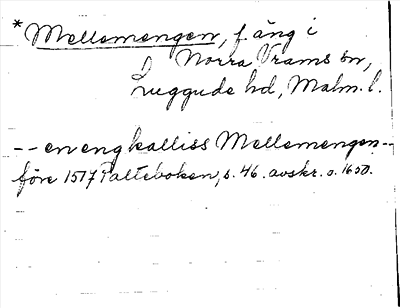 * Mellemengen, f. äng i
Norra Vrams sn,
Luggude hd, Malm. l.
-- en eng kalliss Mellemengen --
före 1517 Palteboken, s. 46. avskr. o. 1650.